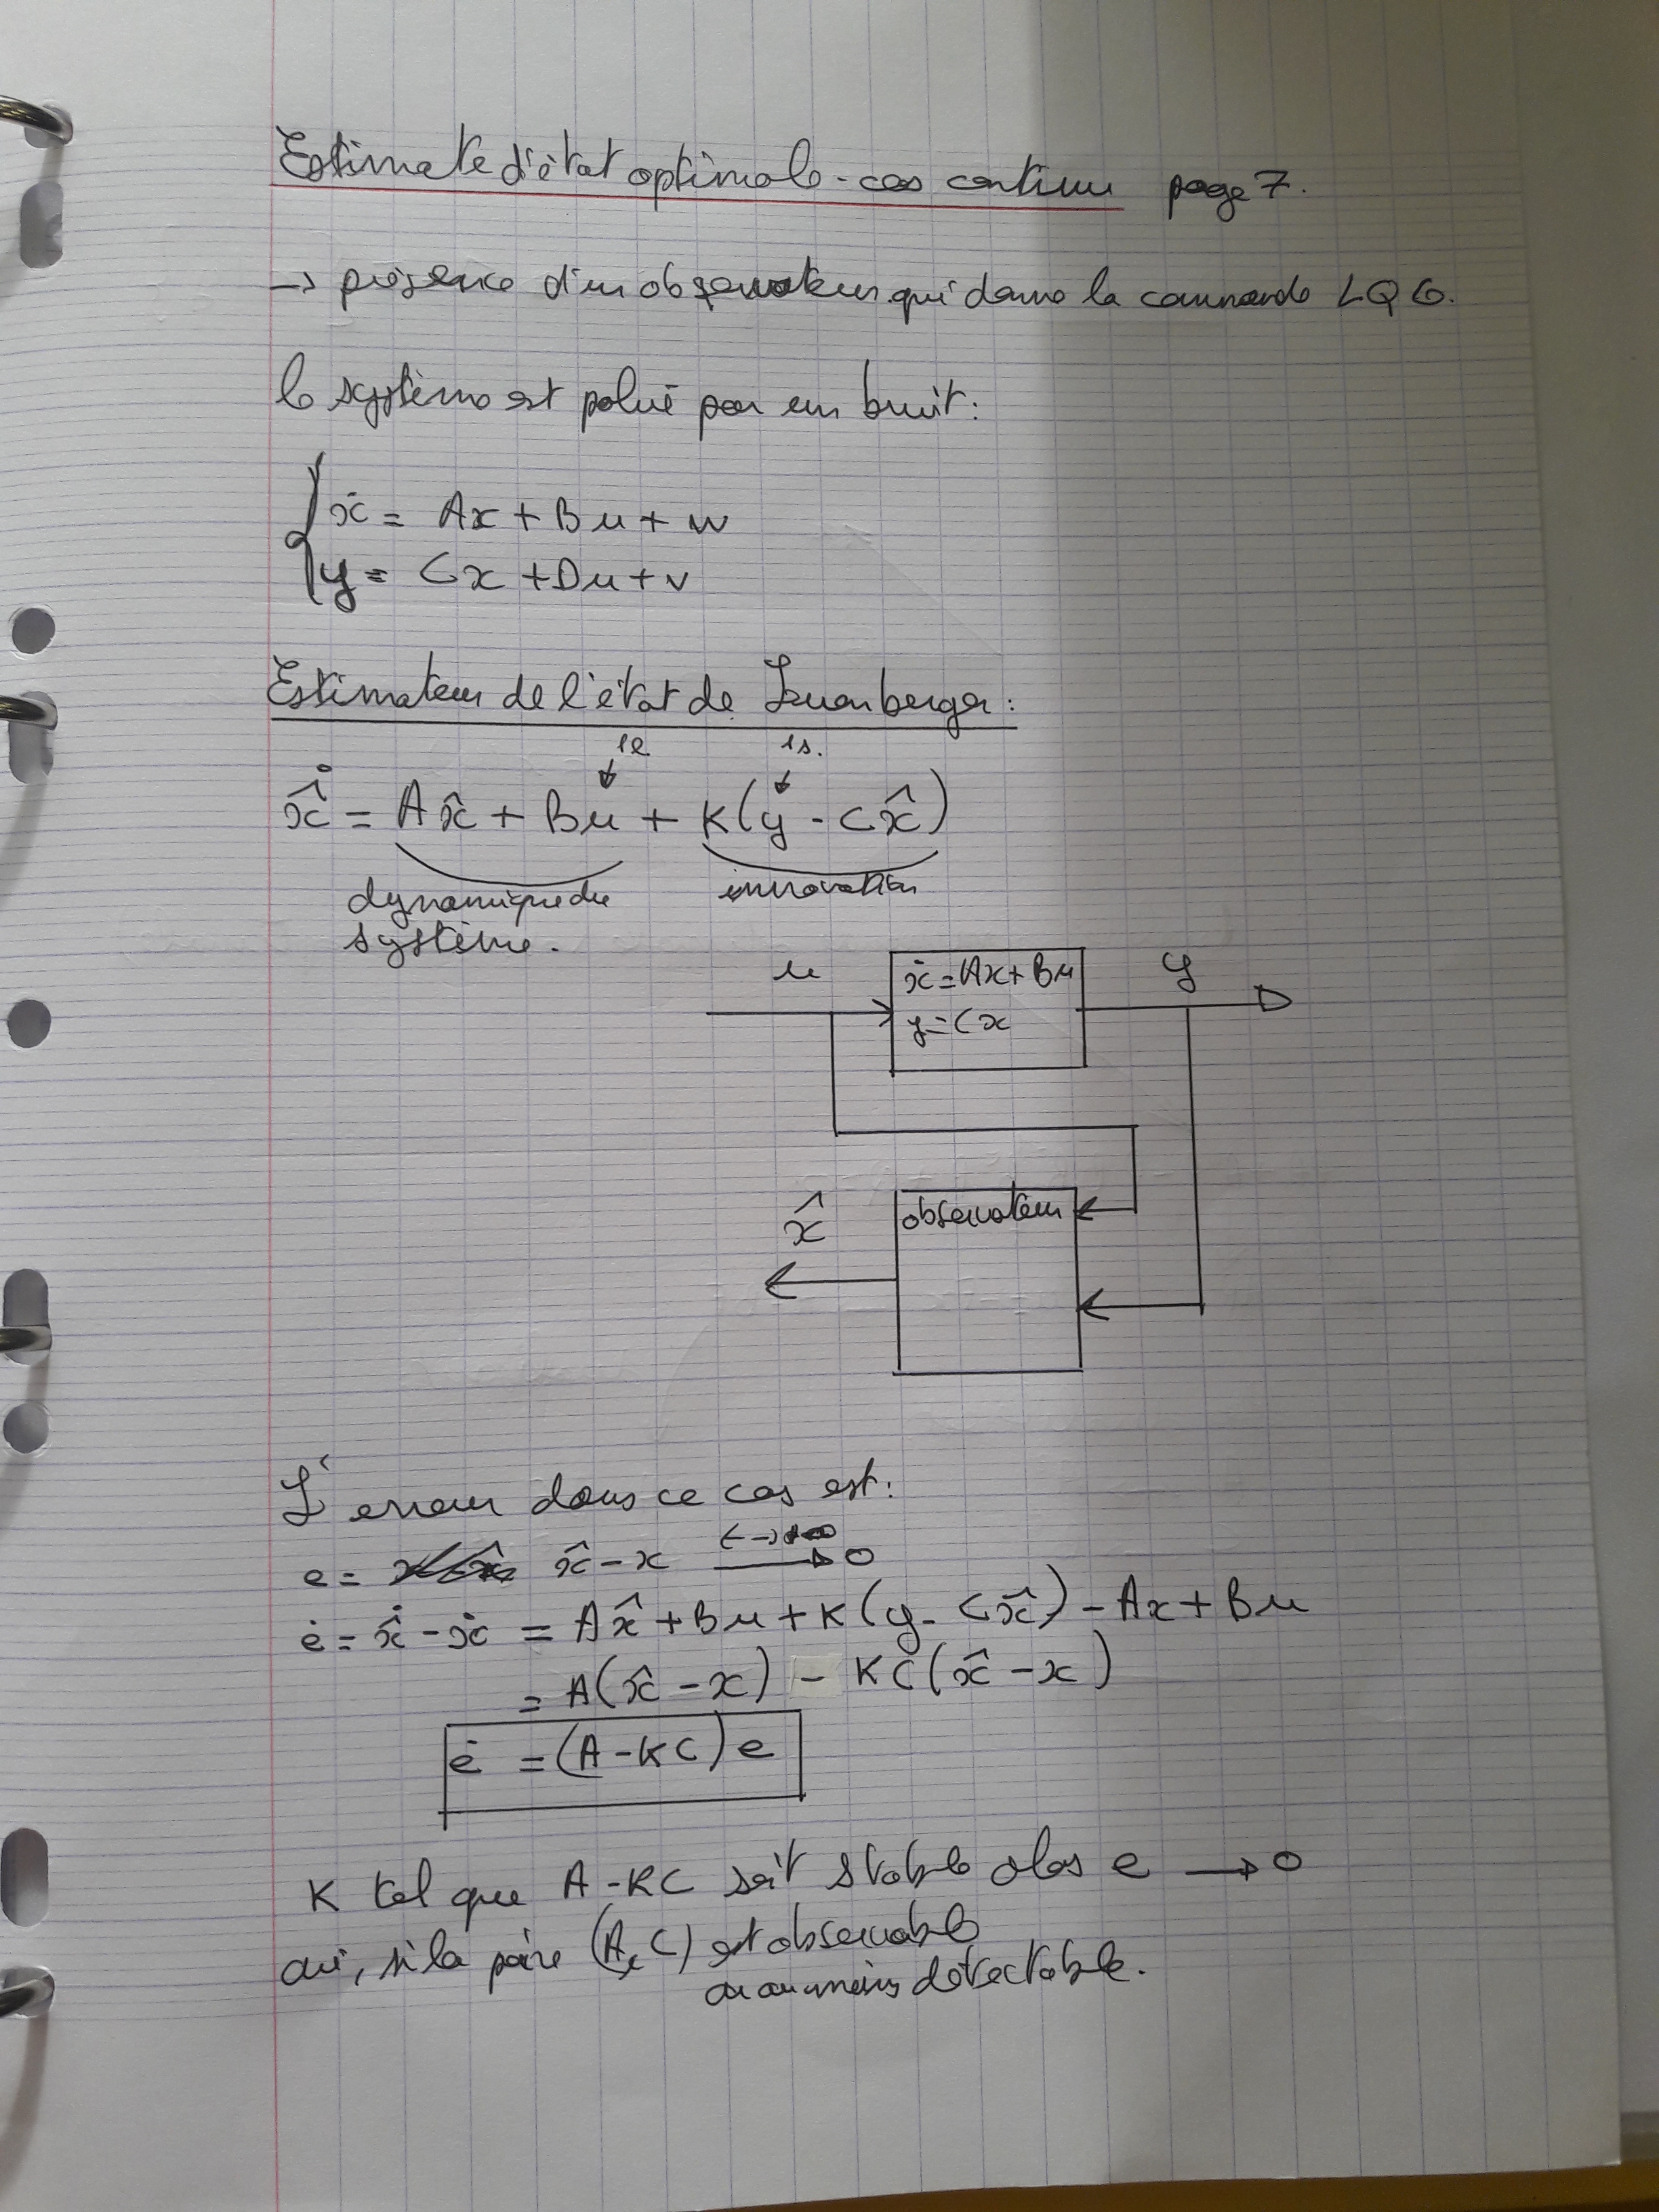 Estimate d'état optimale - cas continu page 7.
→ présence d'un observateur qui donne la commande LQG.
le système est polué par un bruit:
ẋ = Ax + Bu + w
y = Cx + Du + v
Estimateur de l'état de Luenberger:
1e 1s.
x̂̇ = Ax̂ + Bu + K(y - Cx̂)
dynamique du innovation
système.
u ẋ = Ax + Bu y
y = Cx
observateur
x̂
L'erreur dans ce cas est:
e = x̂ - x t→+∞ → 0
ė = x̂̇ - ẋ = Ax̂ + Bu + K(y - Cx̂) - Ax + Bu
= A(x̂ - x) - KC(x̂ - x)
ė = (A - KC)e
K tel que A - KC soit stable alors e → 0
oui, si la paire (A, C) est observable
ou au moins détectable.